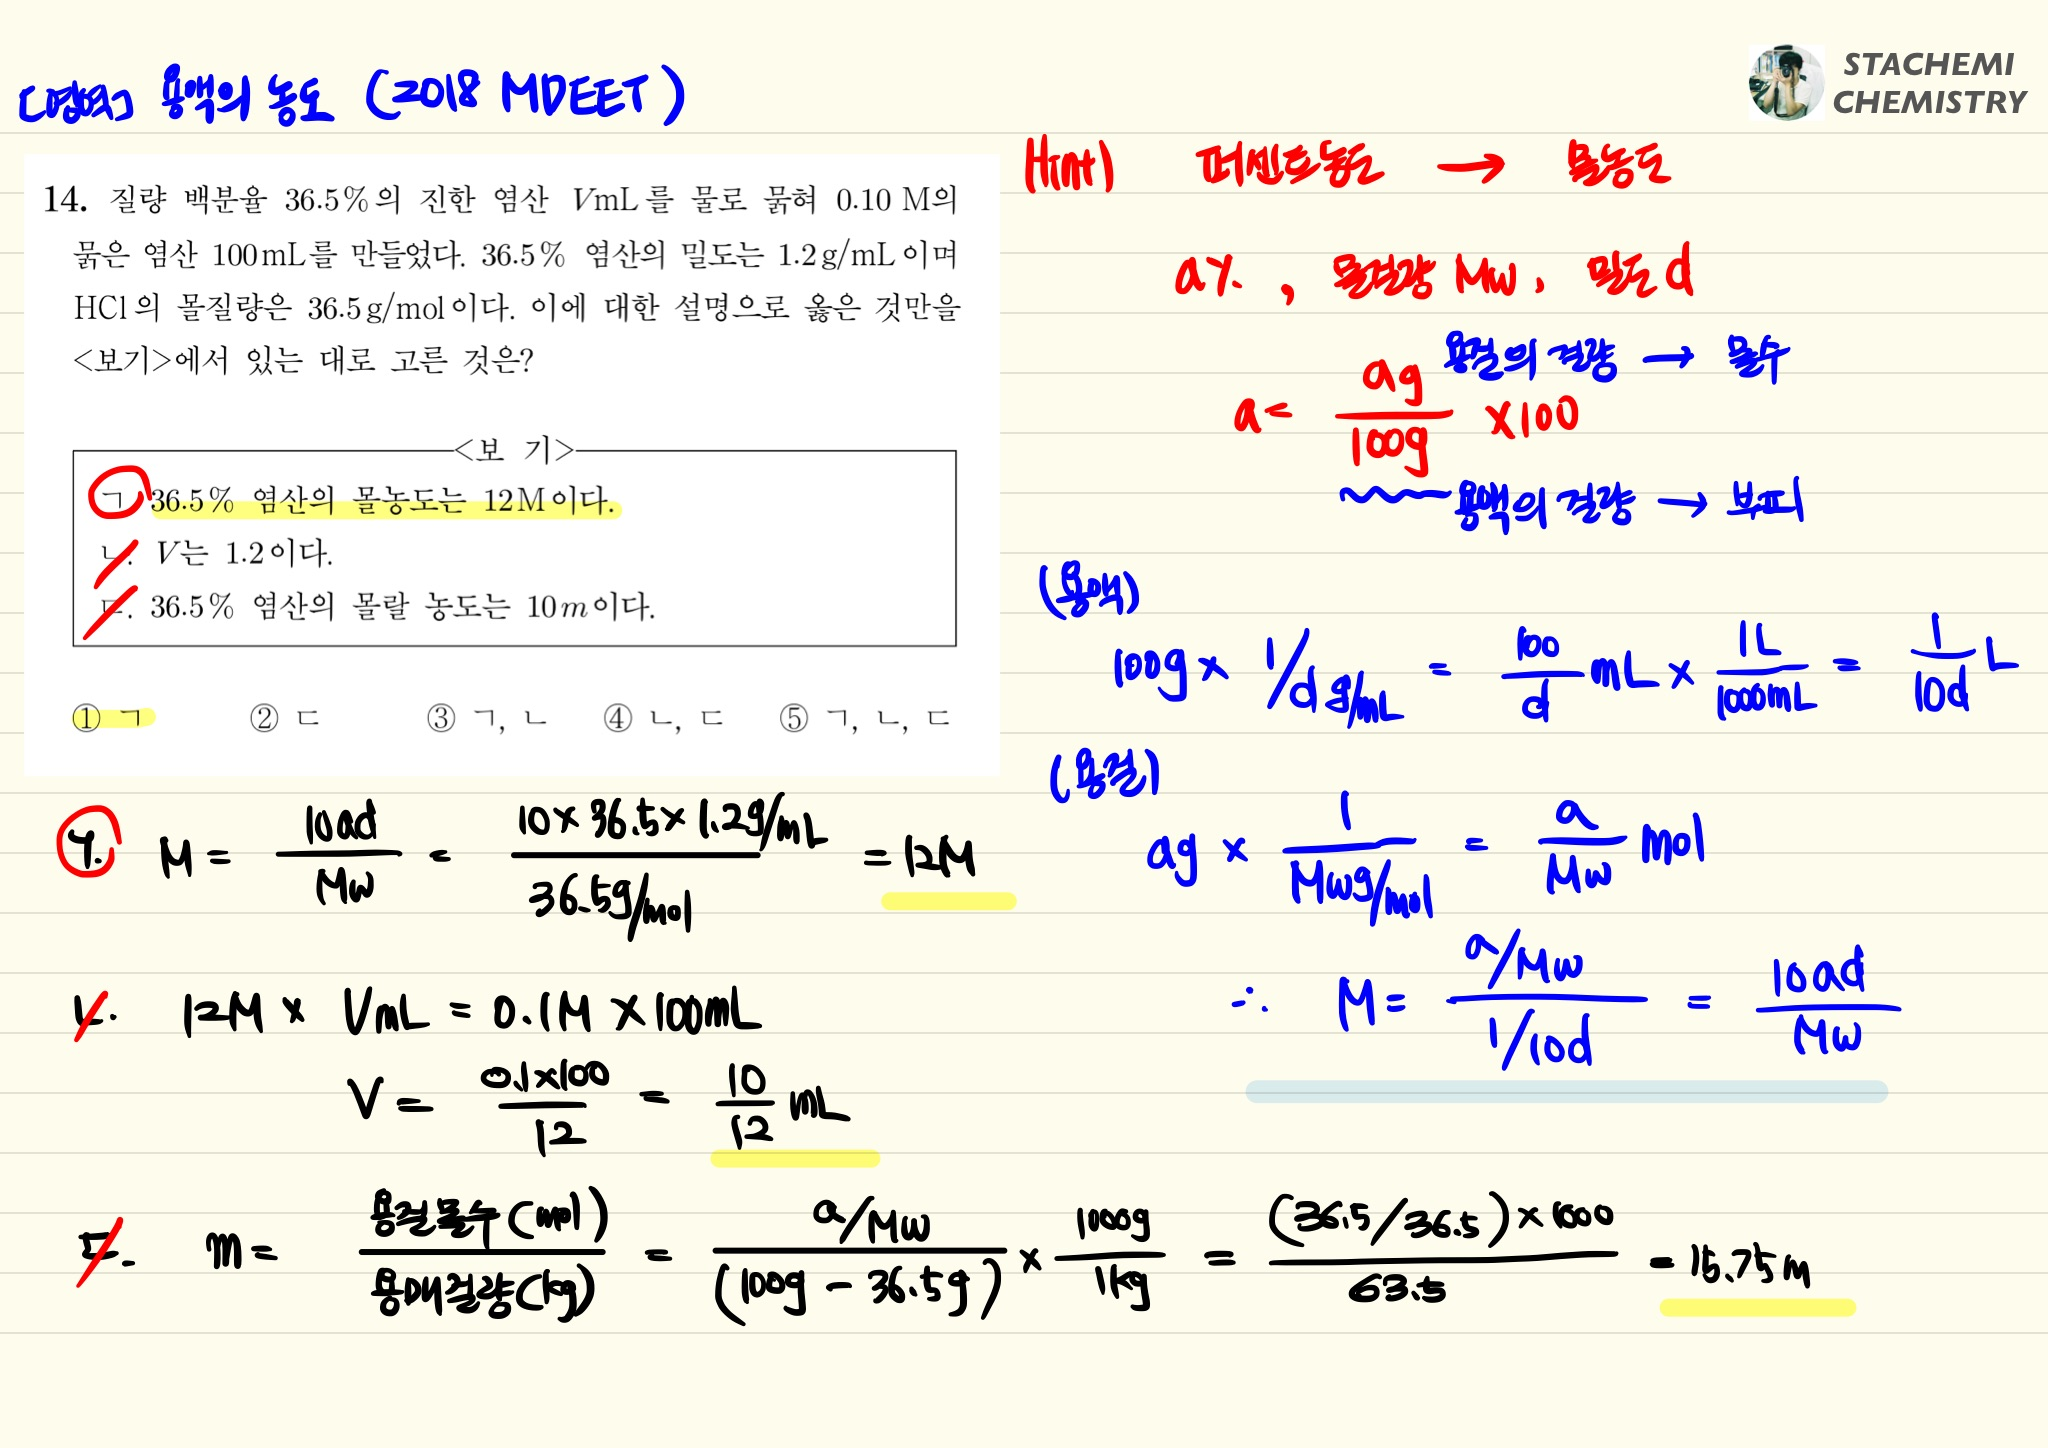 [영역] 용액의 농도 (2018 MDEET)
STACHEMI
CHEMISTRY
14. 질량 백분율 36.5%의 진한 염산 VmL를 물로 묽혀 0.10 M의
묽은 염산 100mL를 만들었다. 36.5% 염산의 밀도는 1.2g/mL이며
HCl의 몰질량은 36.5g/mol이다. 이에 대한 설명으로 옳은 것만을
<보기>에서 있는 대로 고른 것은?
<보 기>
ㄱ. 36.5% 염산의 몰농도는 12M이다.
ㄴ. V는 1.2이다.
ㄷ. 36.5% 염산의 몰랄 농도는 10m이다.
① ㄱ ② ㄷ ③ ㄱ, ㄴ ④ ㄴ, ㄷ ⑤ ㄱ, ㄴ, ㄷ
(Hint) 퍼센트농도 → 몰농도
a%, 몰질량 Mw, 밀도 d
a = ag/100g ×100
용질의 질량 → 몰수
용액의 질량 → 부피
(용액)
100g × 1/d g/mL = 100/d mL × 1L/1000mL = 1/10d L
(용질)
ag × 1/Mw g/mol = a/Mw mol
∴ M = (a/Mw)/(1/10d) = 10ad/Mw
ㄱ. M = 10ad/Mw = 10×36.5×1.2g/mL / 36.5g/mol = 12M
ㄴ. 12M × VmL = 0.1M × 100mL
V = 0.1×100/12 = 10/12 mL
ㄷ. m = 용질몰수(mol)/용매질량(kg) = a/Mw/(100g - 36.5g) × 1000g/1kg = (36.5/36.5)×1000/63.5 = 15.75m